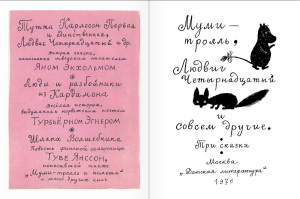 Тутта Карлссон Первая
и единственная,
Людвиг Четырнадцатый и др.
сказка,
написанная шведским писателем
ЯНОМ ЭКХОЛЬМОМ
Люди и разбойники
из Кардамона
история,
норвежским поэтом
ТУРБЬЁРНОМ ЭГНЕРОМ
Шляпа Волшебника
Повесть финской сказочницы
ТУВЕ ЯНССОН,
написавшей также
„Муми-тролль и комета“
и много других книг
Муми-
тролль,
Людвиг
Четырнадцатый
и
совсем другие.
Три сказки
Москва
„Детская литература“